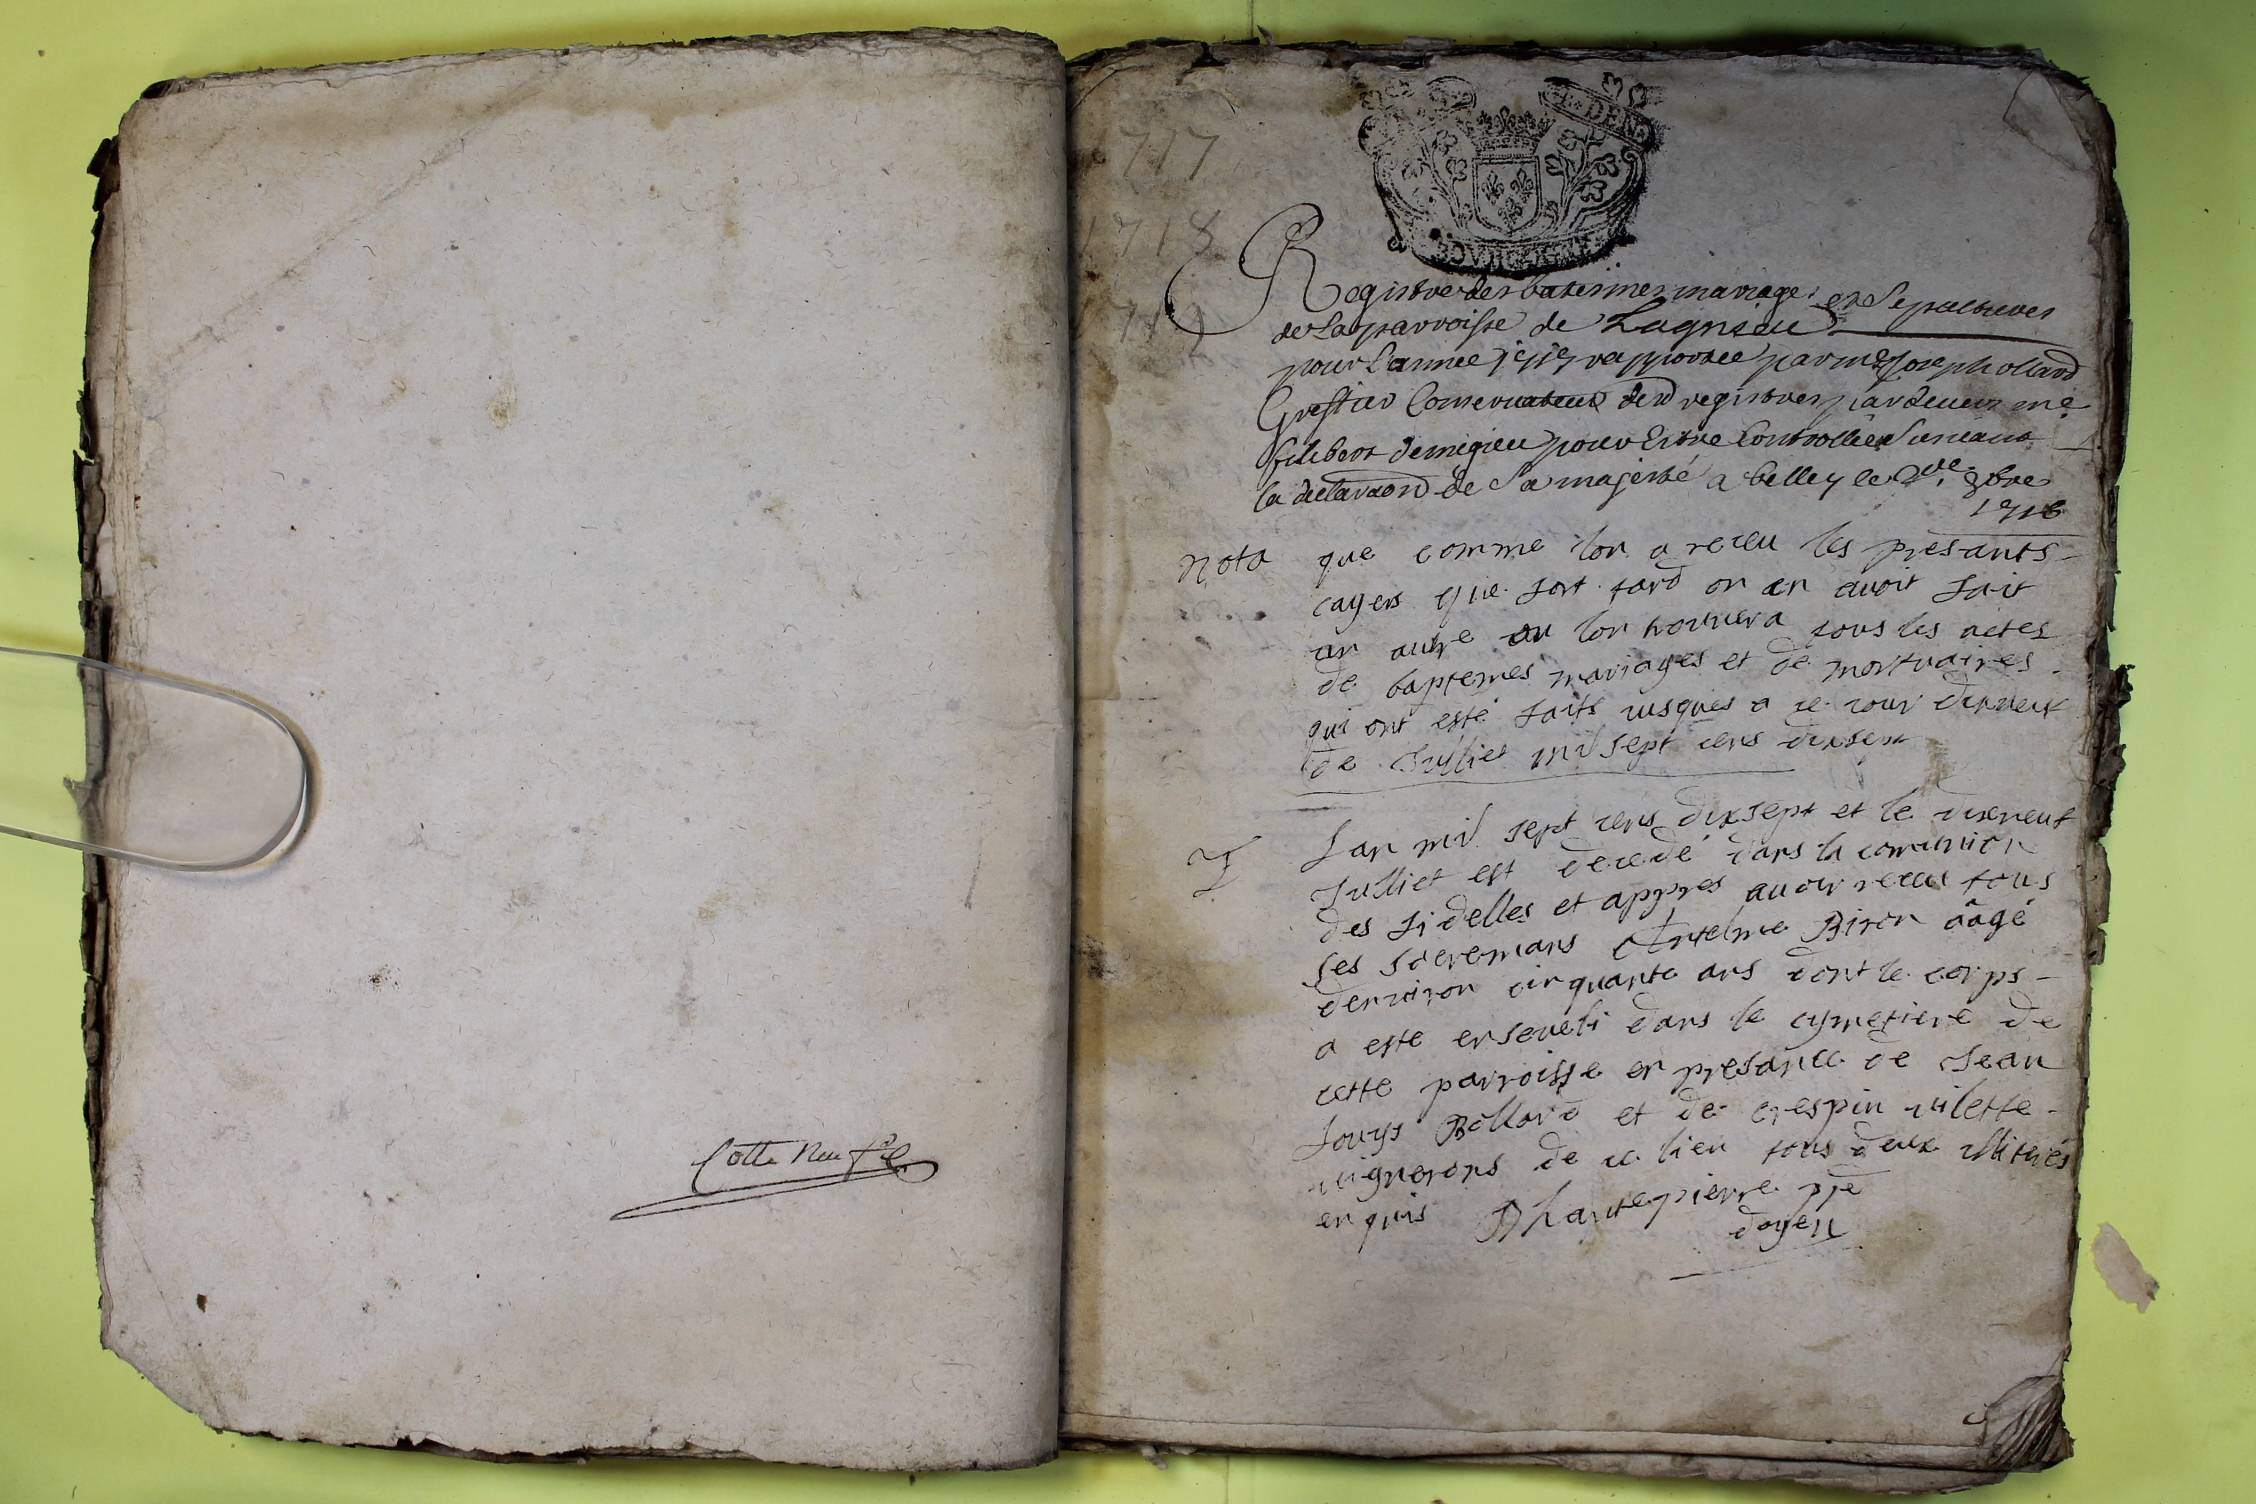 Cotté neuf
1717
1718
1719
DEN
BOVRGOGNE
Registre des batesmes mariages et Sepultures
de la parroisse de Lagnieu
pour l'année 1717 rapportée par me Joseph ollard
Greffier Conservateur desd registres pardevers me
filibert demigieu pour Estre Controllée Suivant
la declaraon de Sa majesté a belley le 8bre
1716
Nota que comme lon a receu les presants
cayers que fort tard on en avoit fait
un autre ou lon trouvera tous les actes
de baptemes mariages et de mortuaires
qui ont esté faits iusques a ce iour dixneuf
de Julliet mil sept cens dixsept
Lan mil sept cens dixsept et le dixneuf
Julliet est decedé dans la comunion
des fidelles et appres avoir receu tous
ses sacremans Antelme Biron âagé
denviron cinquante ans dont le corps
a esté enseveli dans le cymetiere de
cette parroisse en presance de Jean
Louys Bollard et de crespin vilette
vignerons de ce lieu tous deux illiterés
enquis Dhautepierre ptre
doyen